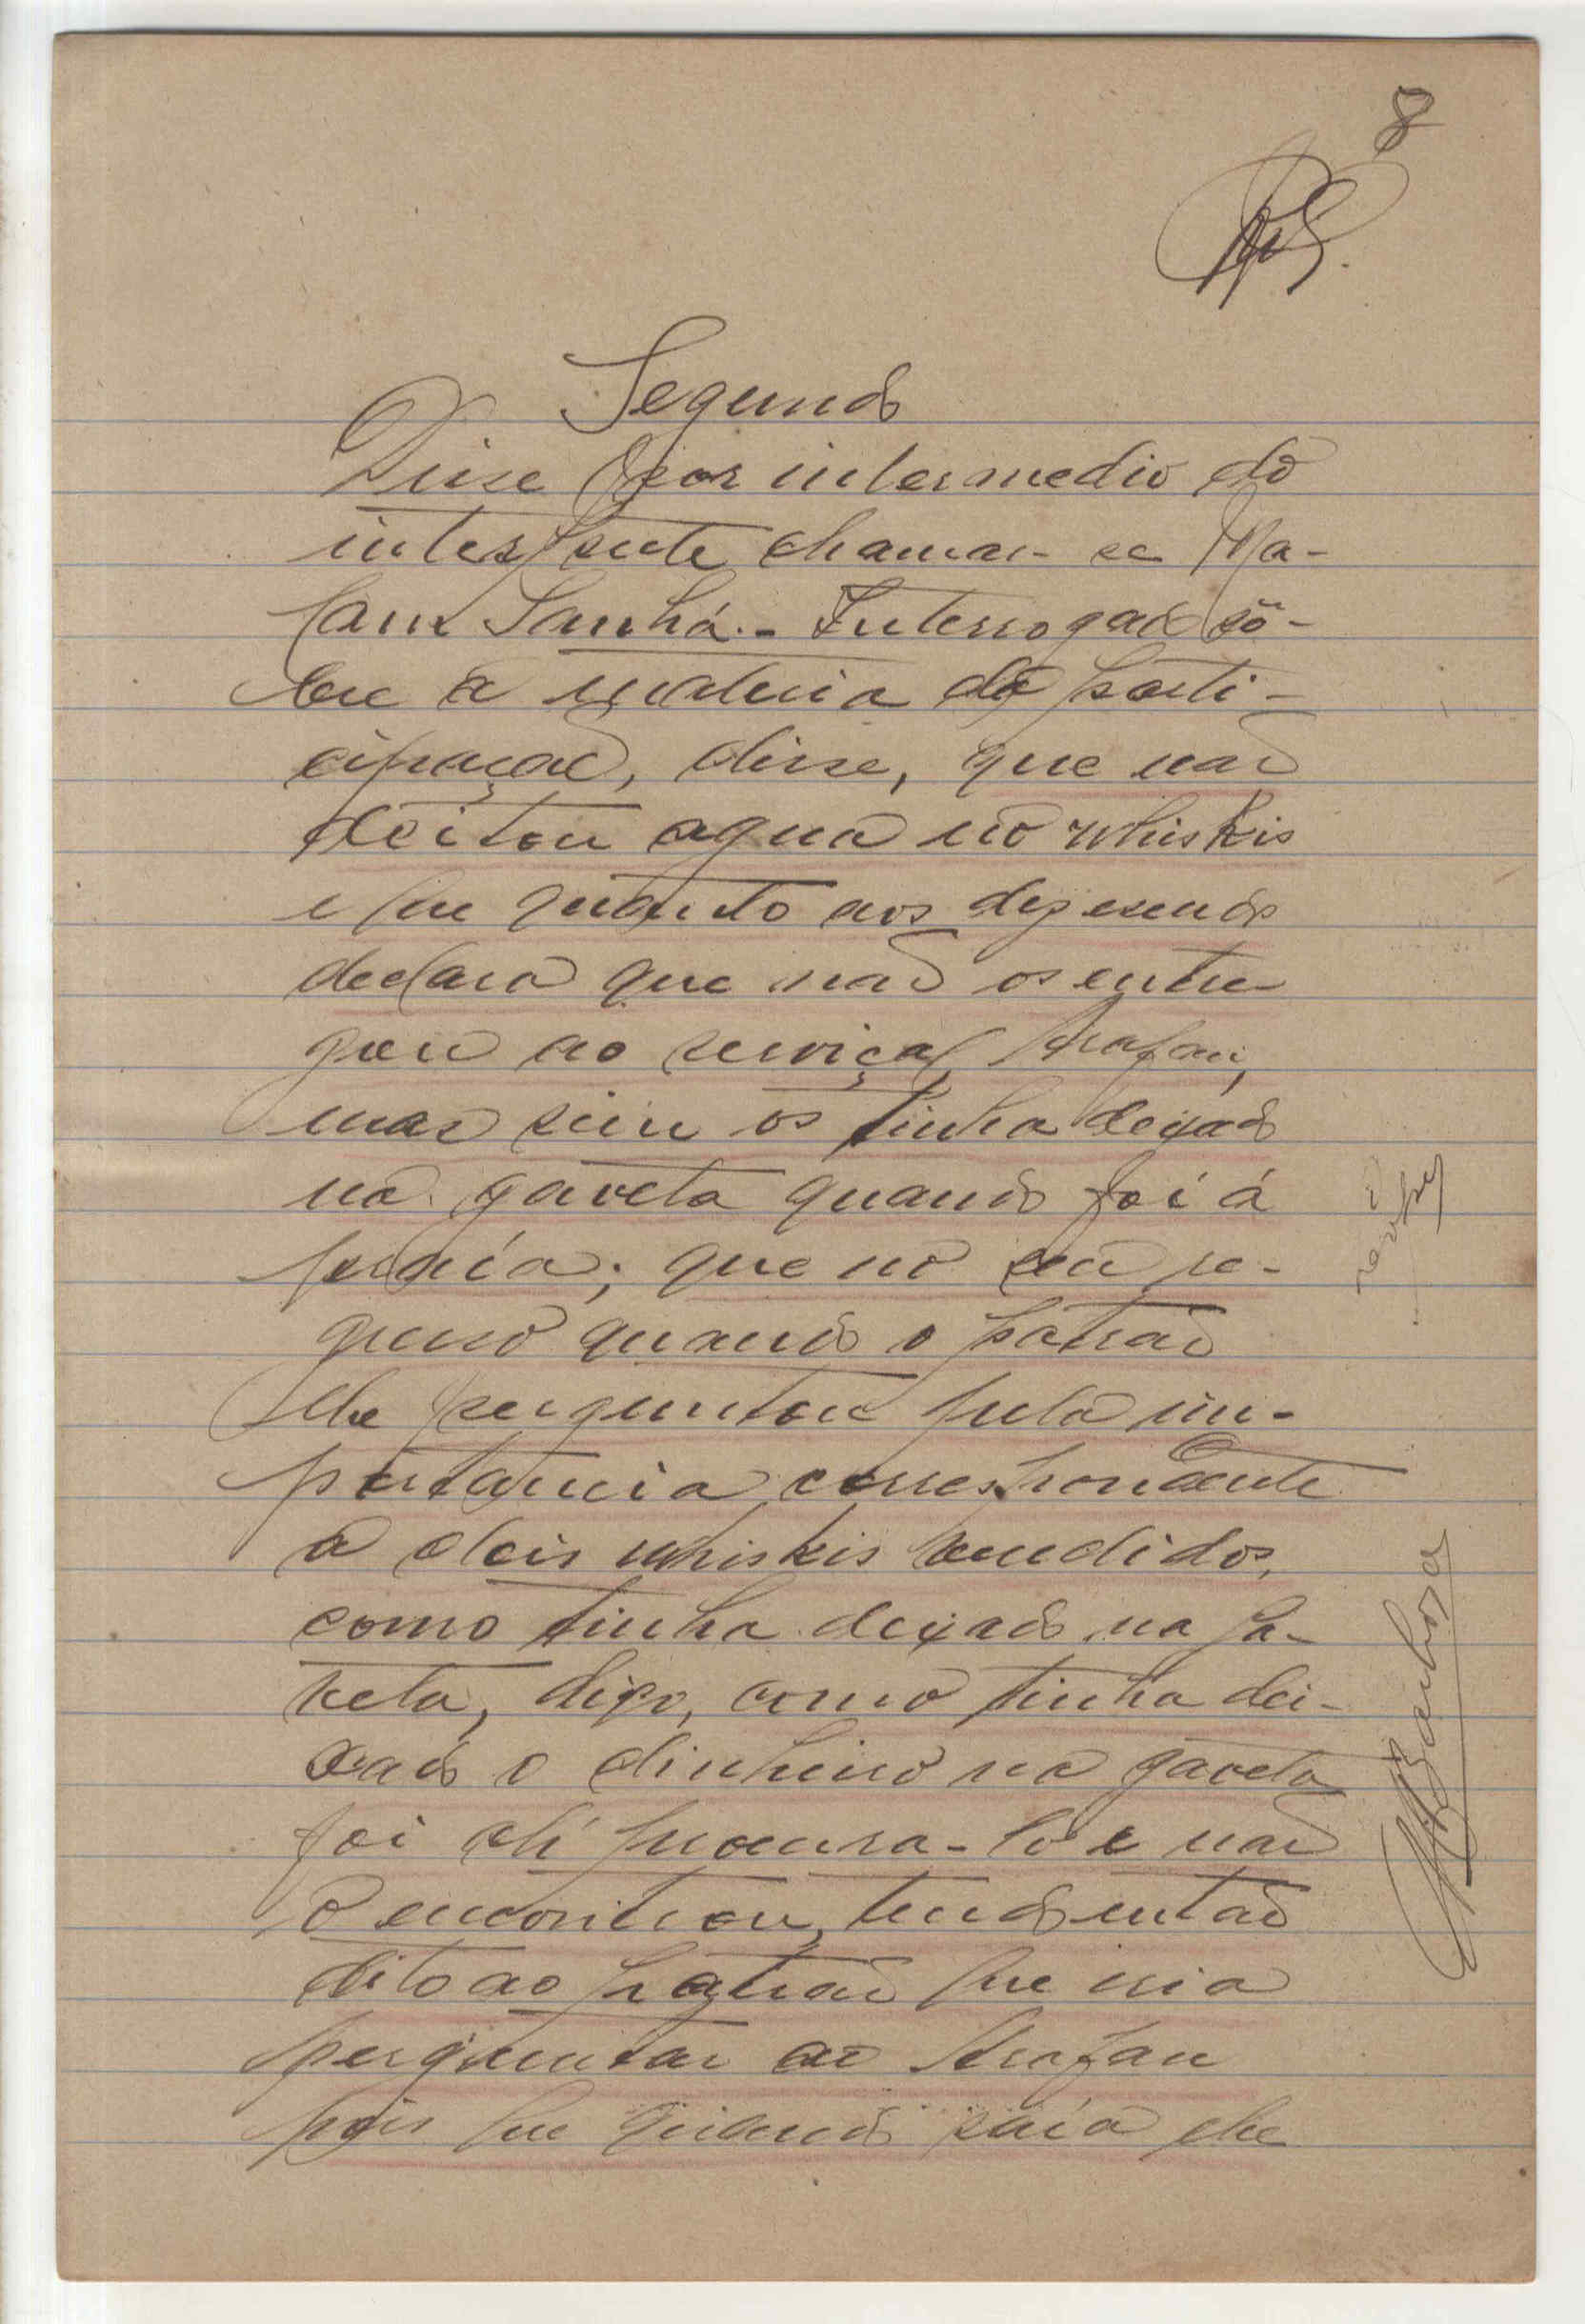 8
Segundo
Disse por intermedio do
interprete chamar-se Ma-
lam Sanhá.- Interrogado sô-
bre a materia da parti-
cipação, disse, que não
deitou agua no whiskis
e que quanto aos dez escudos
declara que não os entre-
gou ao serviçal Arafan,
mas sim os tinha deixado
na gaveta quando foi á
que no seu re-
gresso quando o patrão
lhe perguntou pela im-
portancia correspondente
a dois whiskis vendidos,
como tinha deixado na ga-
veta, digo, como tinha dei-
xado o dinheiro na gaveta
foi ali procura-lo e não
o encontrou, tendo então
dito ao patrão que iria
perguntar ao Arafan
pois que quando saía ele
Barbosa